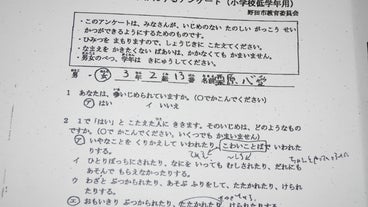 アンケート（小学校低学年用）
野田市教育委員会
・このアンケートは、みなさんが、いじめのない たのしい がっこう せい
かつができるようにするためのものです。
・ひみつを まもりますので、しょうじきに こたえてください。
・なまえを かきたくない ばあいは、かかなくても かまいません。
・男女のべつ、学年は きにゅうしてください。
男 女 3 年 2 組 13 番 名前
1 あなたは、今いじめられていますか。（○でかこんでください）
ア はい イ いいえ
2 1で「はい」と こたえた人に ききます。そのいじめは、どのようなもの
ですか。（○で かこんでください。いくつでも かまいません）
ア いやなことを くりかえして いわれたり、こわいことば
たりする。
イ ひとりぼっちにされたり、なにを いっても むしされたり、だれにも
あそんで もらえなかったりする。
ウ わざと ぶつかられたり、あそぶ ふりをして、たたかれたり、けられ
たりする。
エ おもいきり ぶつかられたり、たたかれたり、けられたりする。